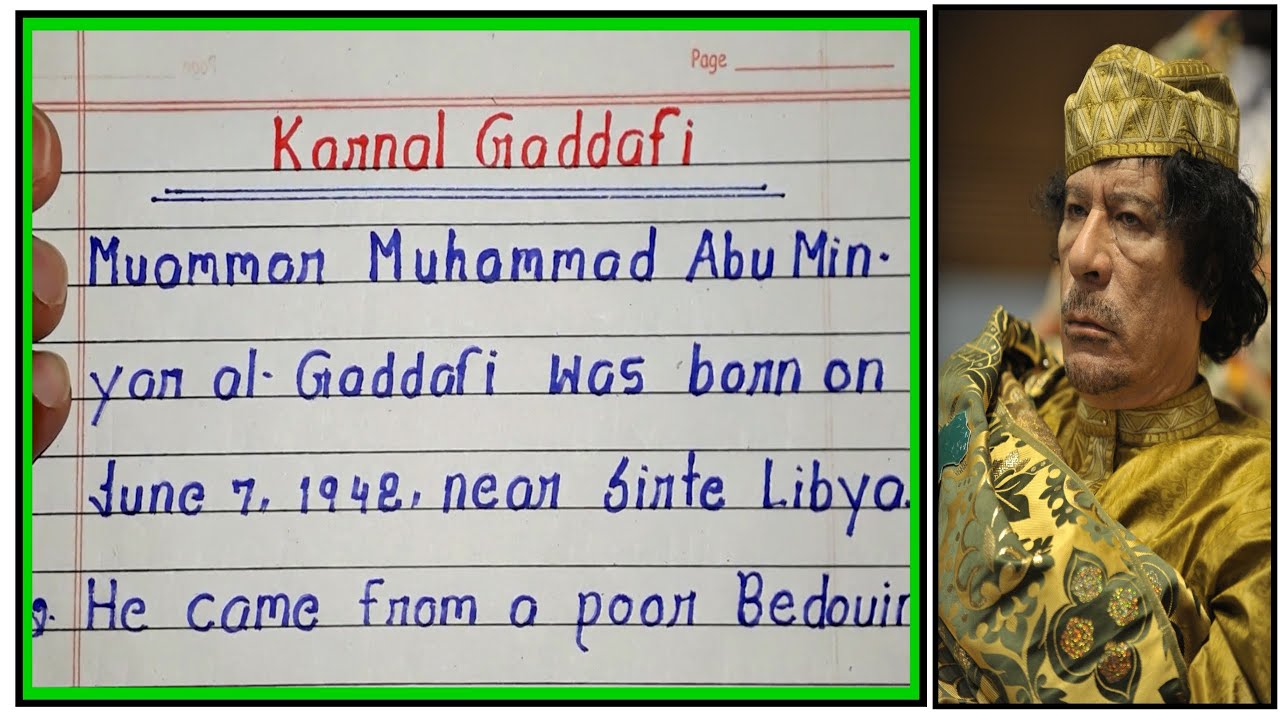 Page
Karnal Gaddafi
Muammar Muhammad Abu Min-
yar al-Gaddafi was born on
June 7, 1942, near Sirte Libya.
He came from a poor Bedouin